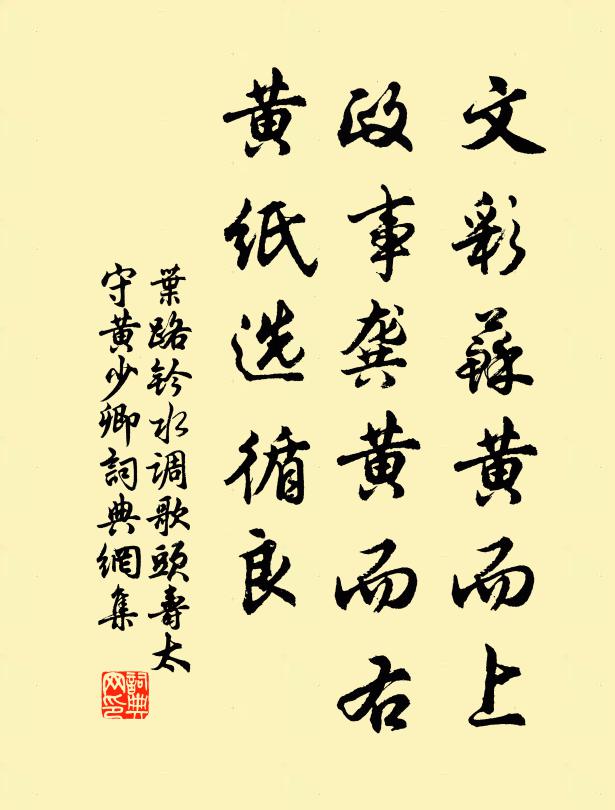 文彩蘇黄而上
政事龔黄而右
黄紙选循良
葉路鈐水调歌頭壽太
守黄少卿詞典網集
詞典网印